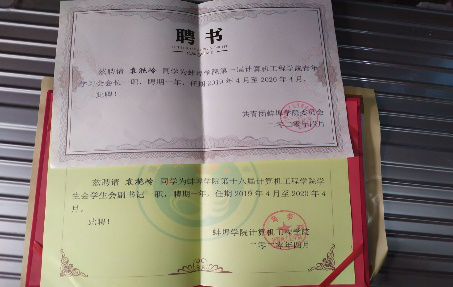 聘书
兹聘请 同学为蚌埠学院第一届计算机工程学院青年
学习会会长 职，聘期一年，任期2019年4月至2020年4月。
此聘！
共青团蚌埠学院委员会
二〇二零年四月
兹聘请 同学为蚌埠学院第十八届计算机工程学院学
生会学生会副书记 职，聘期一年，任期2019年4月至2020年4
月。
此聘！
蚌埠学院计算机工程学院
二〇二零年四月